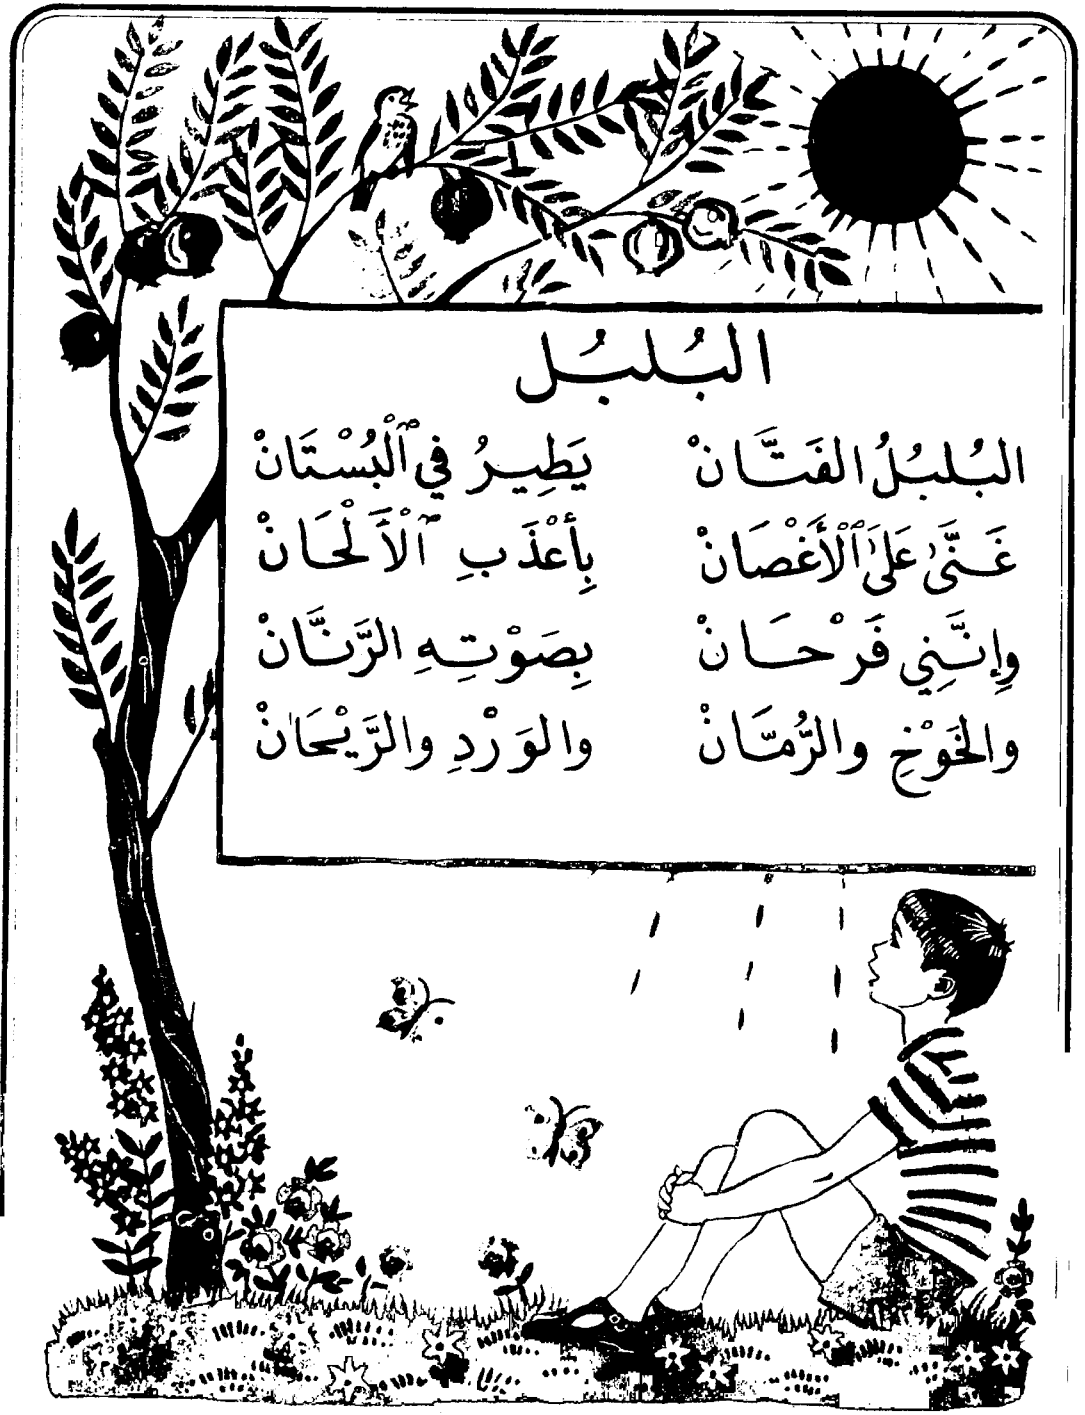 البُلبُل
البُلبُلُ الفَتَّانْ يَطِيرُ في ٱلْبُسْتَانْ
غَنَّىٰ عَلَىٰ ٱلْأَغْصَانْ بِأَعْذَبِ ٱلْأَلْحَانْ
وإنَّنِي فَرْحَانْ بِصَوْتِهِ الرَّنَّانْ
والخَوْخِ والرُّمَّانْ والوَرْدِ والرَّيْحَانْ